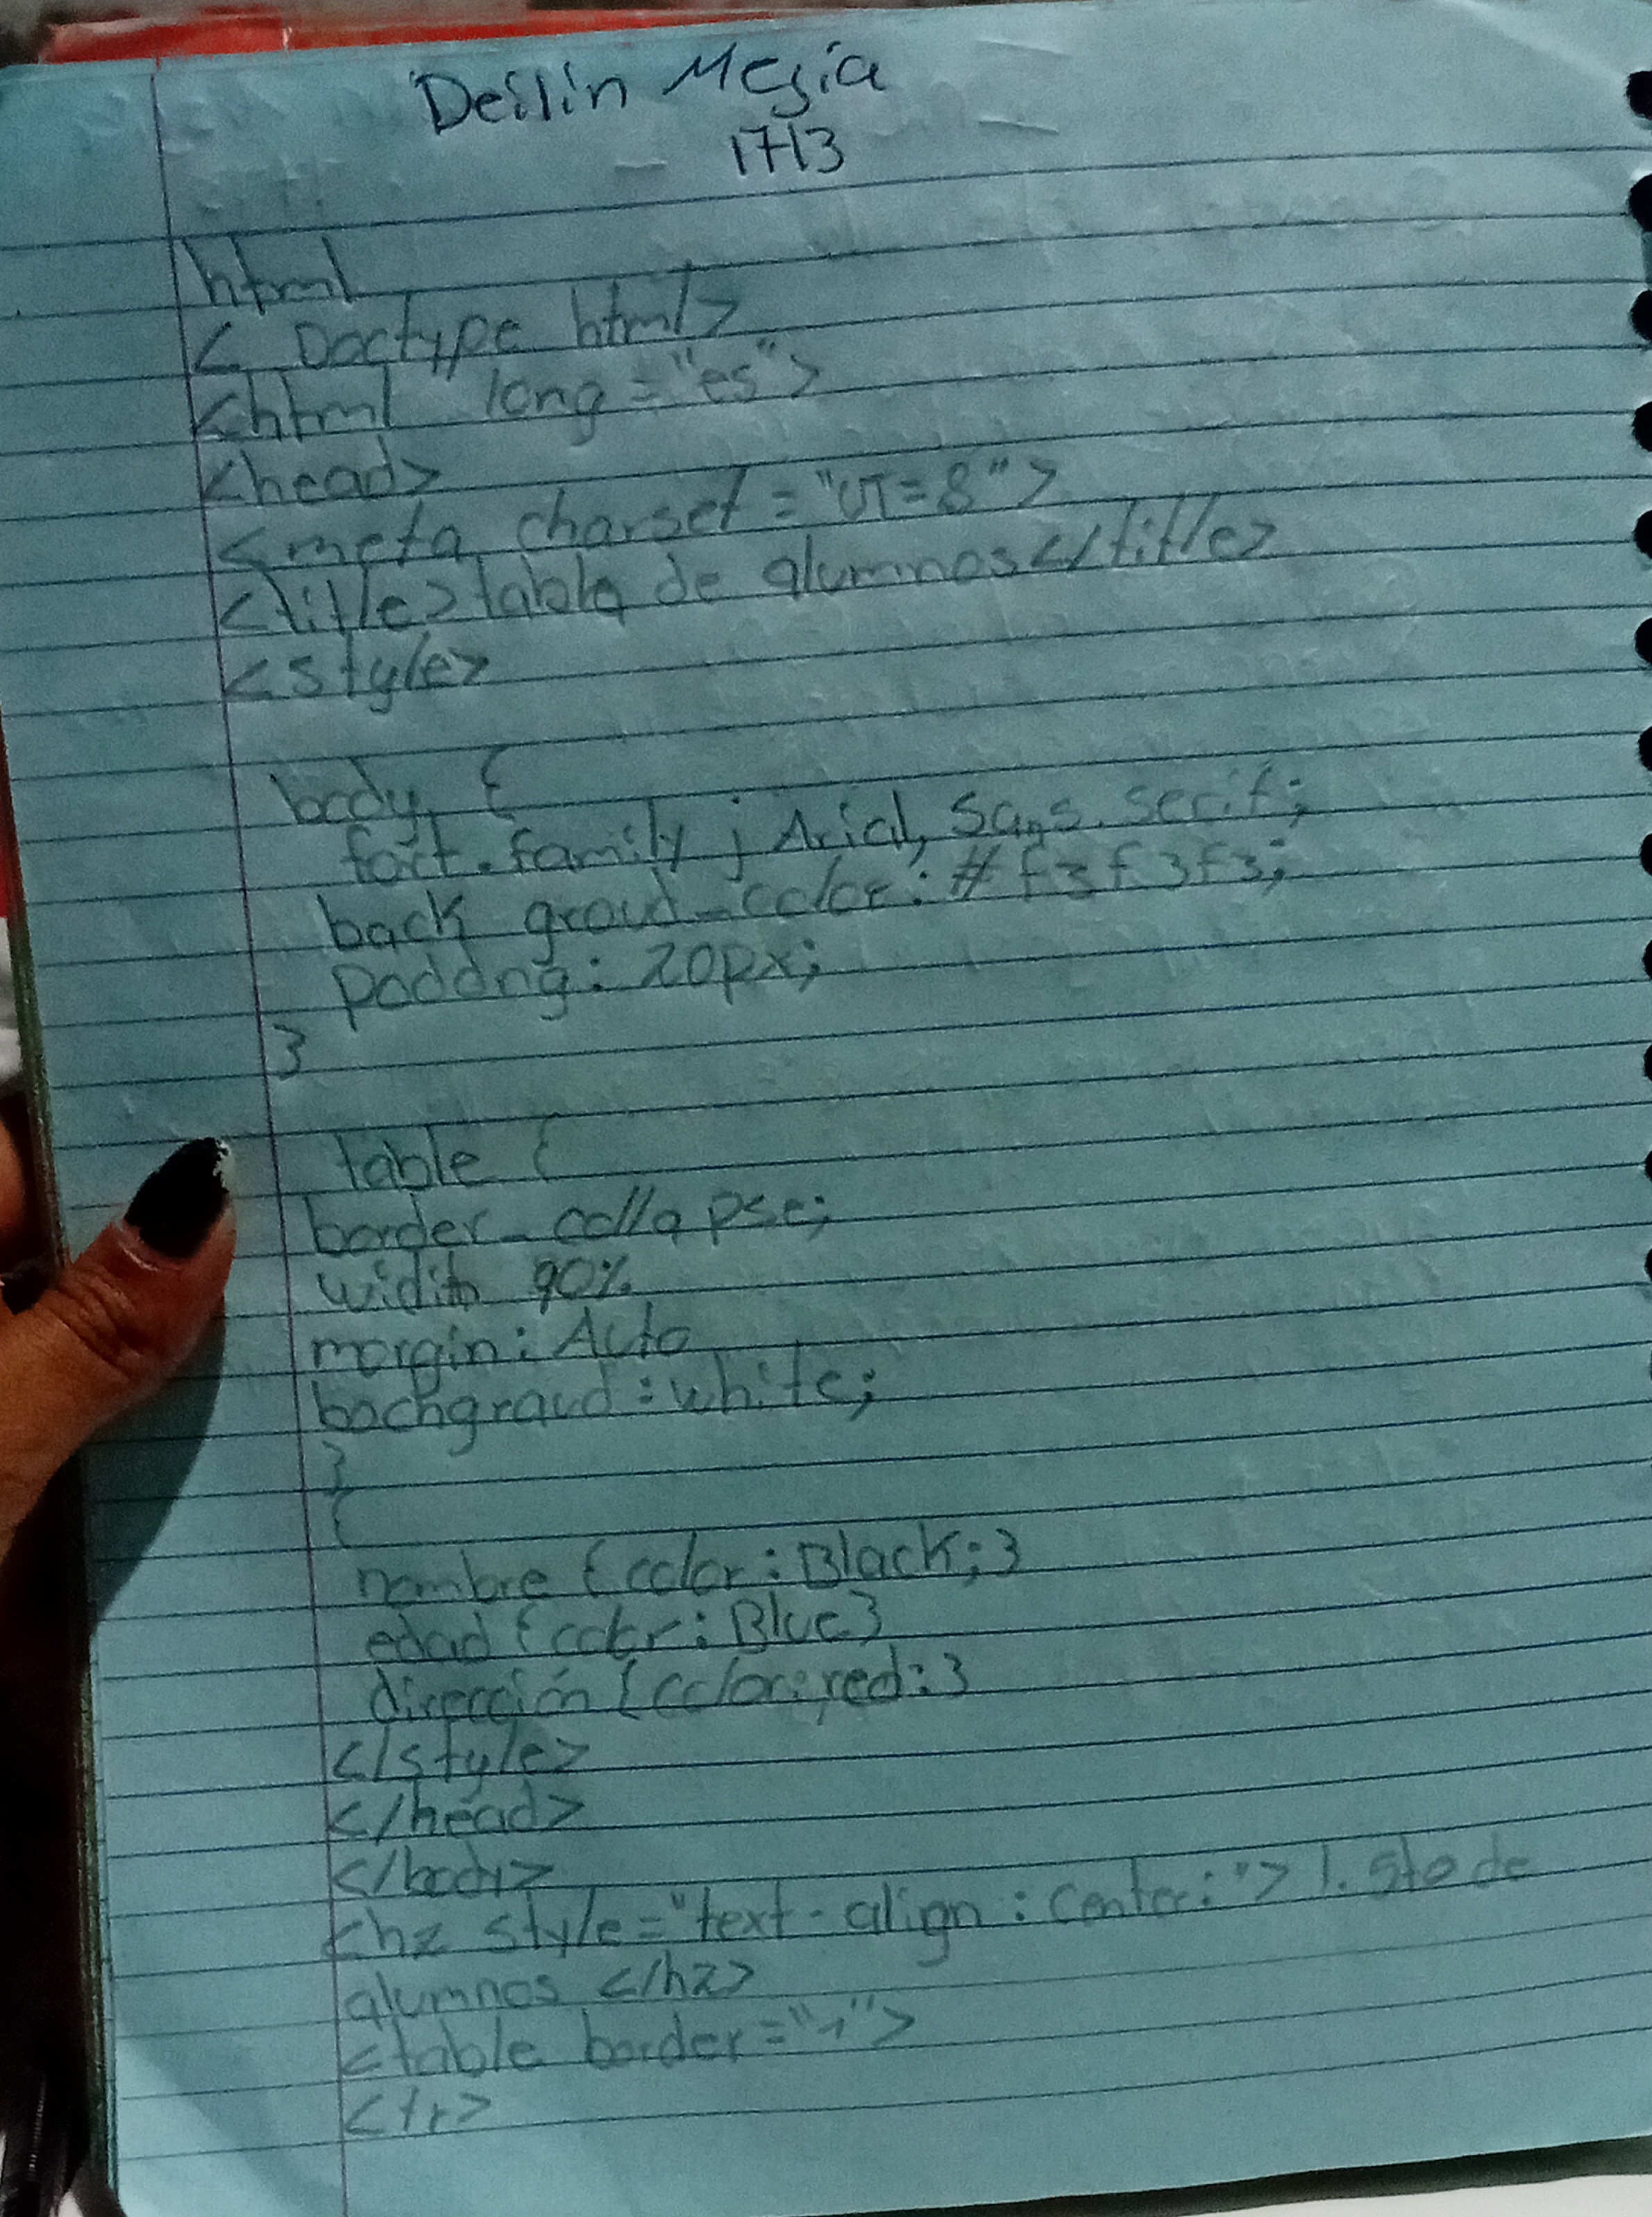 Deilin Mejia
1713
html
< Doctype html>
<html long="es">
<head>
<meta charset="UT=8">
<title>tabla de alumnos</title>
<style>
body {
font.family; Arial, Sans.serif;
back groud_color: #f3f3f3;
paddng: 20px;
}
table {
border_collapse;
width 90%
margin: Auto
bachgraud: white;
}
{
nombre {color: Black;}
edad {color: Blue}
dirección {color: red:}
</style>
</head>
</body>
<h2 style="text-align: center:">listo de
alumnos </h2>
<table border="1">
<tr>